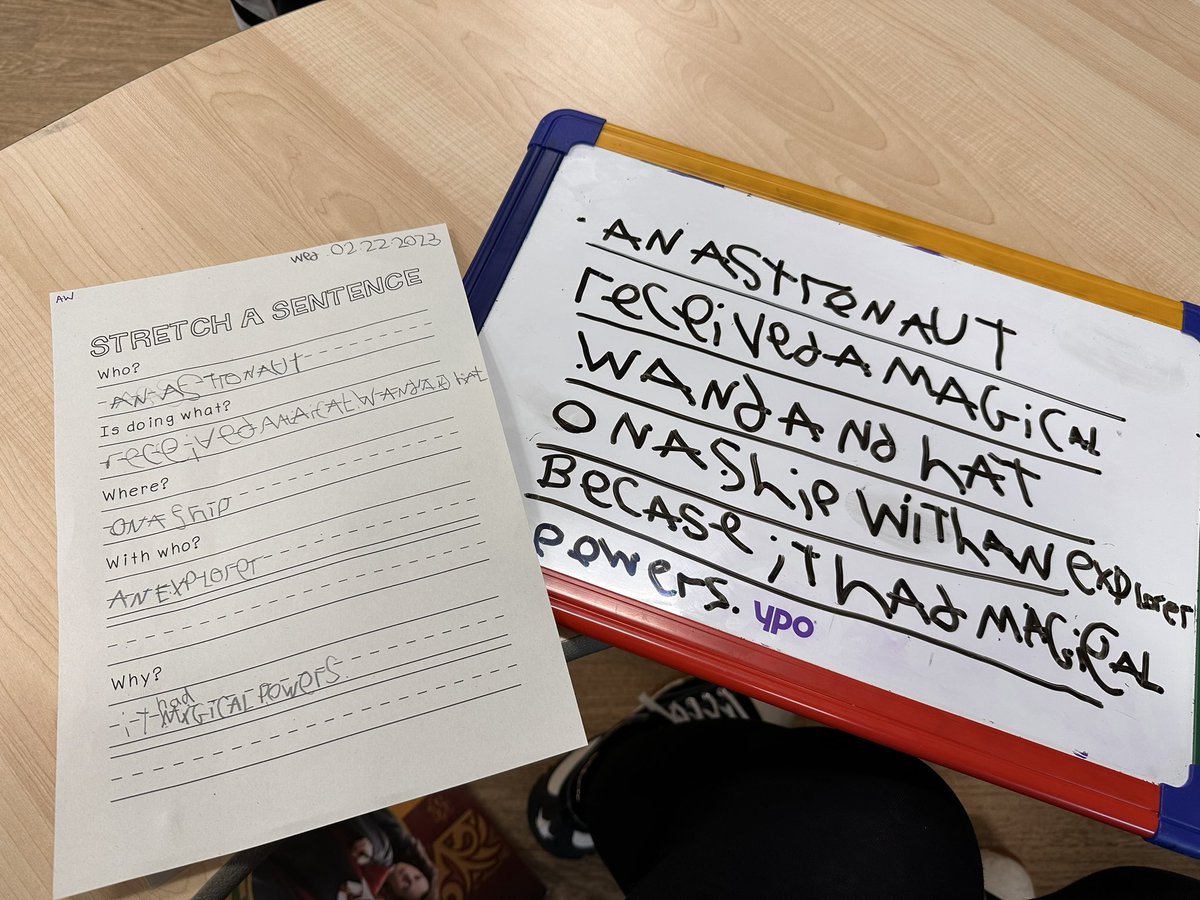 AW
Wed 02.22.2023
STRETCH A SENTENCE
Who?
AN ASTRONAUT
Is doing what?
received MAiCAL WANd ANd hAT
Where?
ON A Ship
With who?
AN EXPLorer
Why?
had
iT MAGiCAL POWerS.
AN ASTroNAUT
receiVed A MAGiCAL
WANd ANd hAT
ON A Ship WiTh AN explorer
BeCASe iT hAd MAGiCAL
powers.
ypo